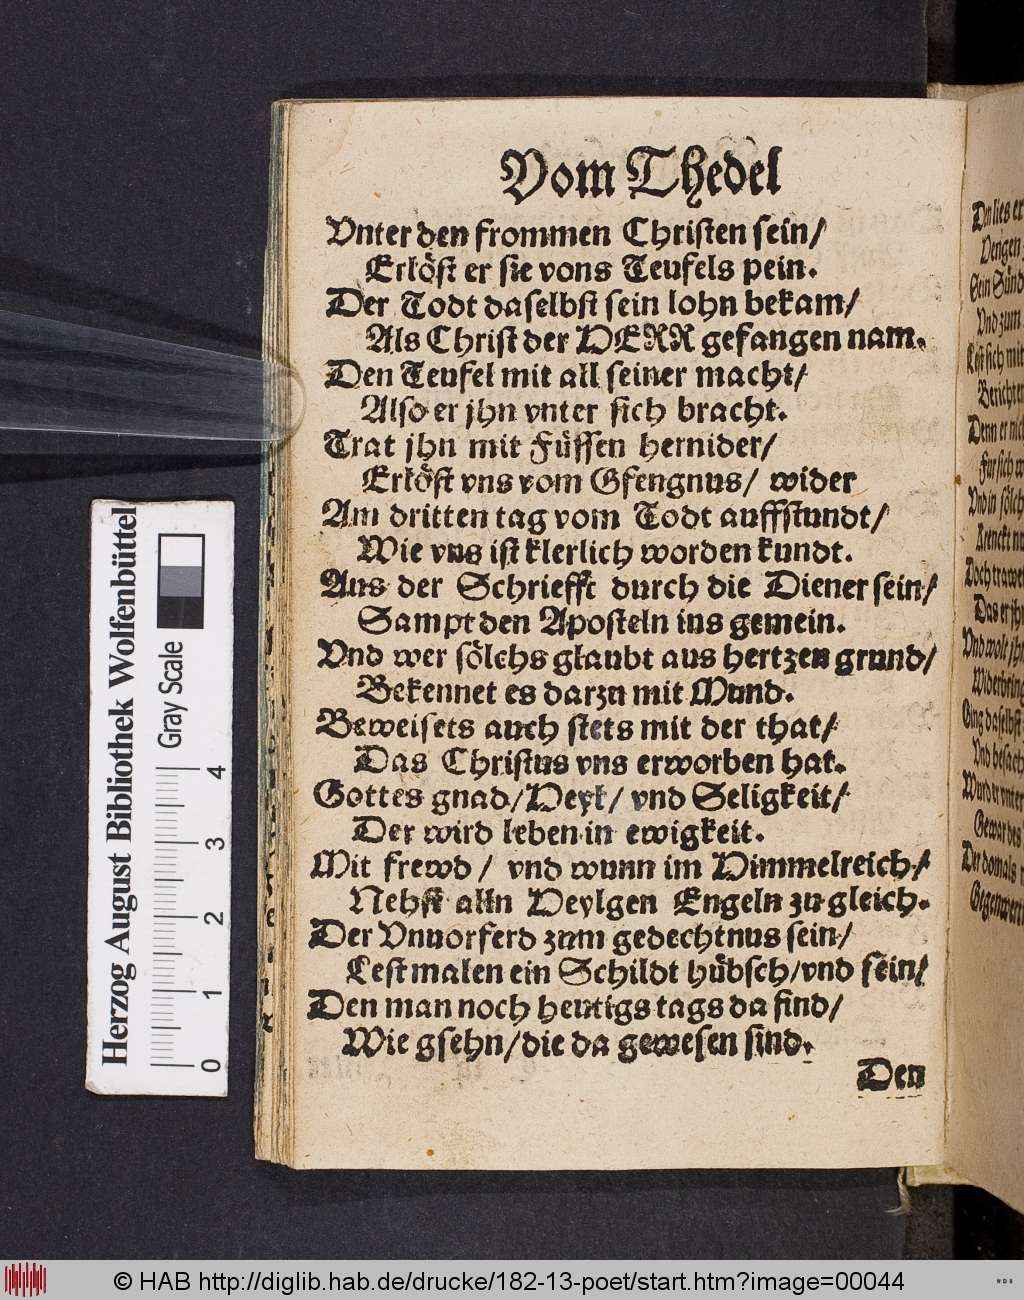 Vom Thedel
Vnter den frommen Christen sein/
Erlöst er sie vons Teufels pein.
Der Todt daselbst sein lohn bekam/
Als Christ der HERR gefangen nam.
Den Teufel mit all seiner macht/
Also er jhn vnter sich bracht.
Trat jhn mit Füssen hernider/
Erlöst vns vom Gfengnus/ wider
Am dritten tag vom Todt auffstundt/
Wie vns ist klerlich worden kundt.
Aus der Schriefft durch die Diener sein/
Sampt den Aposteln ins gemein.
Vnd wer sölchs glaubt aus hertzen grund/
Bekennet es darzu mit Mund.
Beweisets auch stets mit der that/
Das Christus vns erworben hat.
Gottes gnad/ Heyl/ vnd Seligkeit/
Der wird leben in ewigkeit.
Mit frewd/ vnd wunn im Himmelreich/
Nehst alln Heylgen Engeln zu gleich.
Der Vnuorferd zum gedechtnus sein/
Lest malen ein Schildt hübsch/vnd fein/
Den man noch heutigs tags da find/
Wie gsehn/die da gewesen sind.
Den
Den lies er
Sein Sünd
Vnd zum
Lest sich mit
Denn er nic
Fur sich w
Vnd in sölch
Krenckt nu
Doch trawet
Das er jh
Vnd wolt jh
Ging daselbst
Vnd besach
Wurd er vnter
Gewar des
Der domals
Gegenwert
Herzog August Bibliothek Wolfenbüttel
Gray Scale
0 1 2 3 4
© HAB http://diglib.hab.de/drucke/182-13-poet/start.htm?image=00044